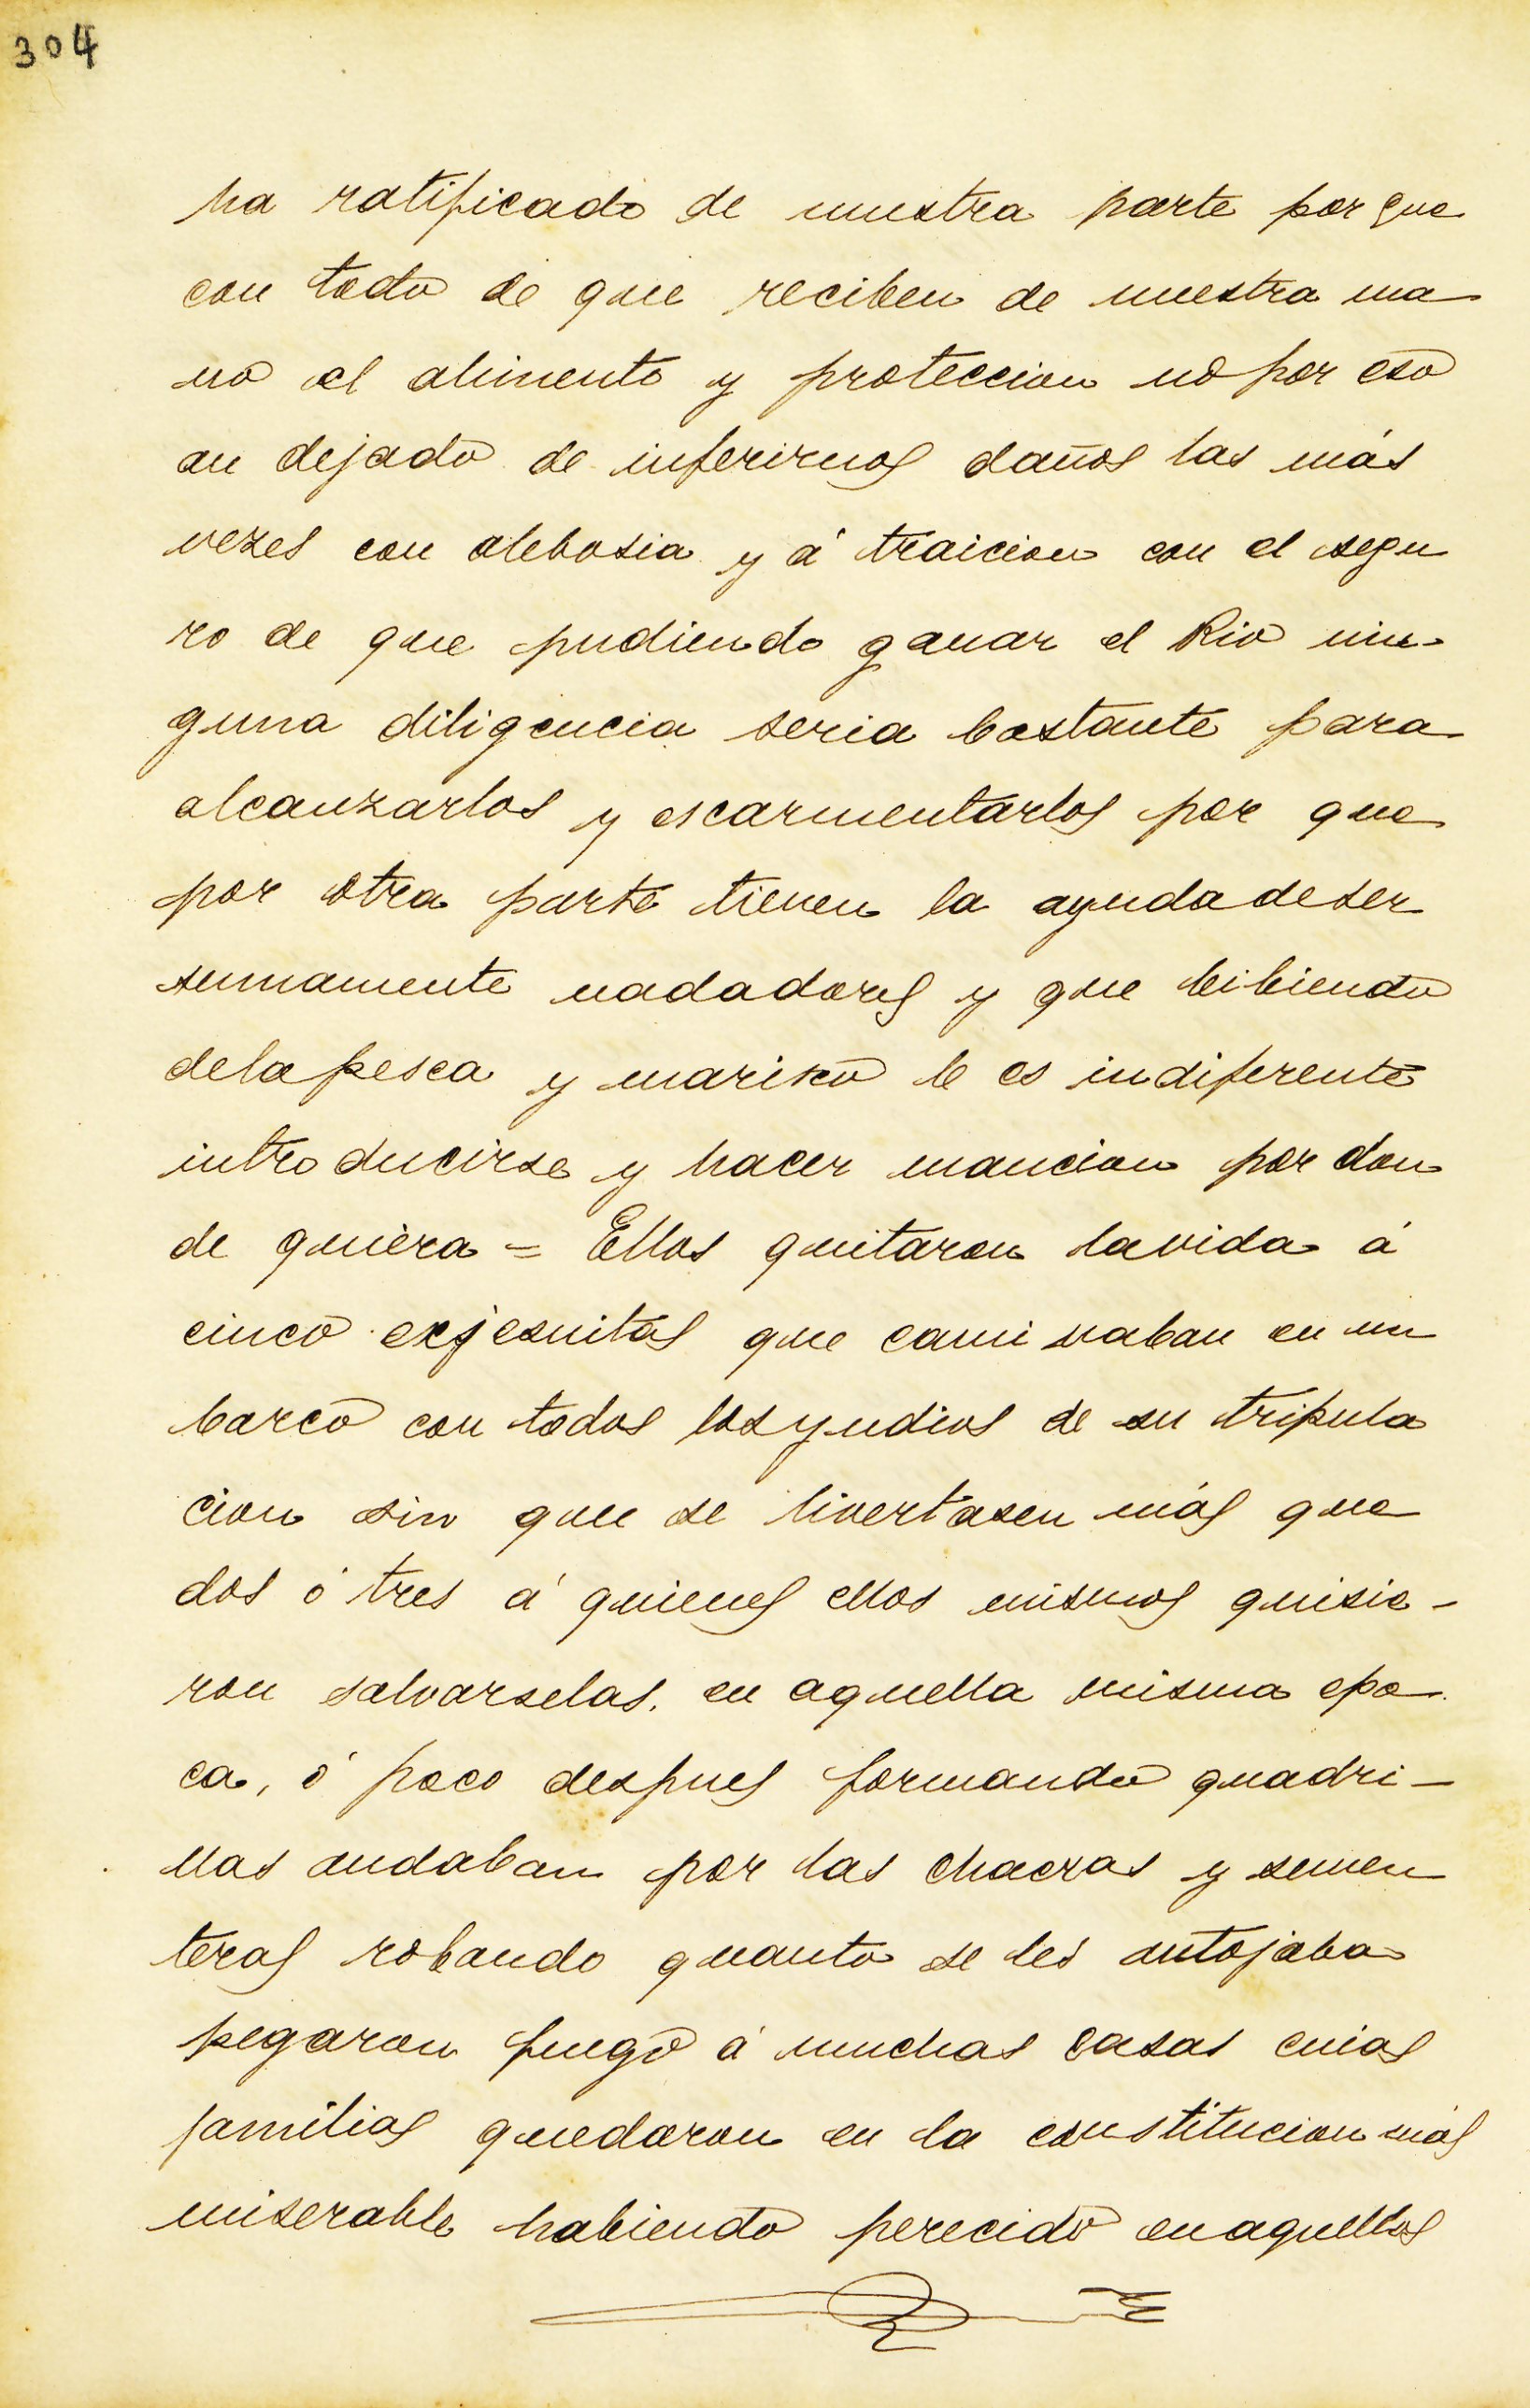 304
ha ratificado de nuestra parte por que
con todo de que reciben de nuestra ma
no el alimento y proteccion no por eso
an dejado de inferirnos daños las más
vezes con alebosia y á traicion con el segu
ro de que pudiendo ganar el Rio nin-
guna diligencia seria bastante para
alcanzarlos y escarmentarlos por que
por otra parte tienen la ayuda de ser
sumamente nadadores y que bibiendo
de la pesca y marisco le es indiferente
introducirse y hacer mancion por don
de quiera = Ellos quitaron la vida á
cinco exjesuitas que caminaban en un
barco con todos los yndios de su tripula
cion sin que se livertasen más que
dos ó tres á quienes ellos mismos quisie-
ron salvarselas, en aquella misma epo
ca, ó poco despues formando quadri-
llas andaban por las chacras y semen
teras robando quanto se les antojaba
pegaron fuego á muchas casas cuias
familias quedaron en la constitucion más
miserable habiendo perecido en aquellos